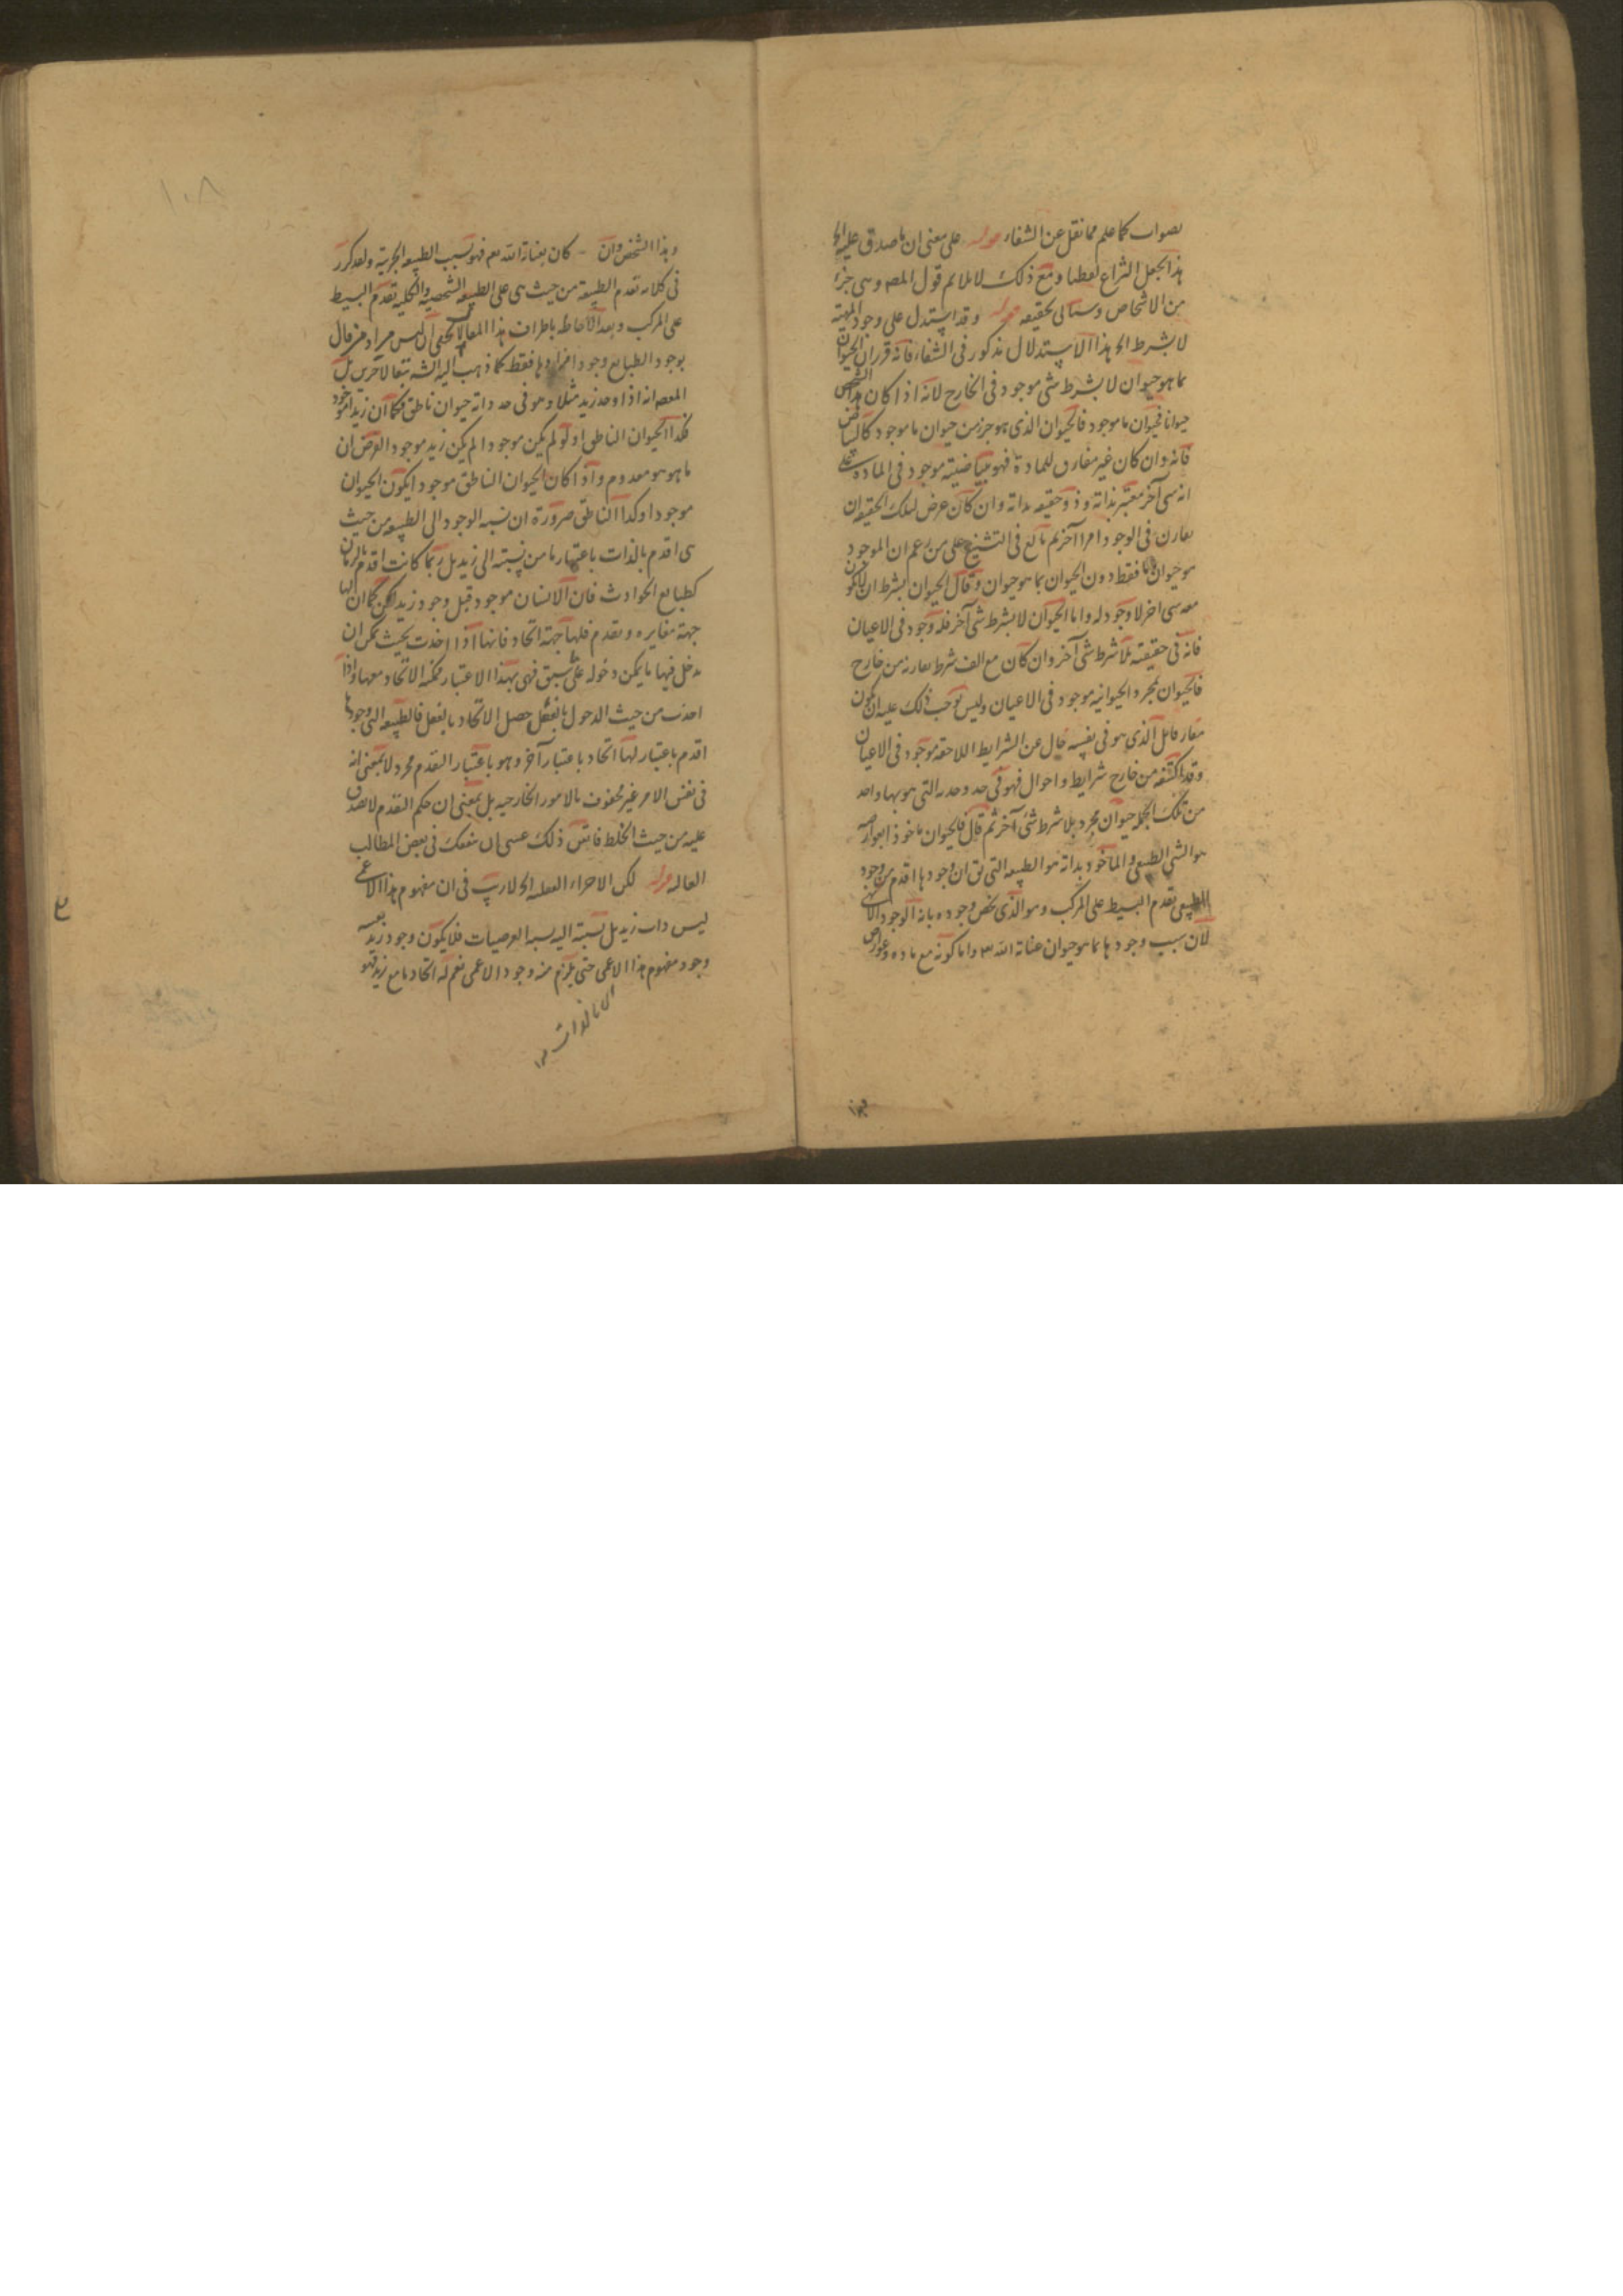 بصواب كما علم مما نقل عن الشفاء قوله على معنى ان ما صدق عليه الخ
هذا يجعل النزاع لفظيا ومع ذلك لا يلائم قول المصه وهى جزء
من الاشخاص وسيأتى تحقيقه قوله وقد استدل على وجود المهية
لا بشرط الخ هذا الاستدلال مذكور فى الشفاء فانه قرر ان الحيوان
بما هو حيوان لا بشرط شى موجود فى الخارج لانه اذا كان هذا الشخص
حيوانا فحيوان ما موجود فالحيوان الذى هو جزء من حيوان ما موجود كالبياض
فانه وان كان غير مفارق للمادة فهو ببياضيته موجود فى المادة على
انه شى آخر معتبر بذاته وذو حقيقه بذاته وان كان عرض لتلك الحقيقه ان
يقارن فى الوجود امرا آخر ثم بالغ فى التشنيع على من زعم ان الموجود
هو حيوان ما فقط دون الحيوان بما هو حيوان وقال الحيوان بشرط ان لا يكون
معه شى اخر لا وجود له واما الحيوان لا بشرط شى آخر فله وجود فى الاعيان
فانه فى حقيقته بلا شرط شى آخر وان كان مع الف شرط يقارنه من خارج
فالحيوان بمجرد الحيوانيه موجود فى الاعيان وليس يوجب ذلك عليه ان يكون
مفارقا بل الذى هو فى نفسه خال عن الشرايط اللاحقه موجود فى الاعيان
وقد اكتنفه من خارج شرايط واحوال فهو فى حد وحدته التى هو بها واحد
من تلك الجمله حيوان مجرد بلا شرط شى آخر ثم قال فالحيوان ماخوذا بعوارضه
هو الشى الطبيعى والماخوذ بذاته هو الطبيعه التى يق ان وجودها اقدم من وجود
الطبيعى تقدم البسيط على المركب وهو الذى يخص وجوده بانه الوجود الالهى
لان سبب وجودها بما هو حيوان عناية الله تع واما كونه مع ماده وعوارض
وهذا الشخص وان كان بعناية الله تع فهو بسبب الطبيعه الجزئية ولقد كرر
فى كلامه تقدم الطبيعة من حيث هى على الطبيعه الشخصيه والكليه تقدم البسيط
على المركب وبعد الاحاطه باطراف هذا المقال لا يخفى ان ليس مراد من قال
بوجود الطبايع وجود افرادها فقط كما ذهب اليه الشه تبعا لآخرين بل
المقصه انه اذا وجد زيد مثلا وهو فى حد ذاته حيوان ناطق فكما ان زيدا موجود
فكذا الحيوان الناطق اذ لو لم يكن موجودا لم يكن زيد موجودا لفرض ان
ما هو هو معدوم واذا كان الحيوان الناطق موجودا يكون الحيوان
موجودا وكذا الناطق ضرورة ان نسبه الوجود الى الطبيعه من حيث
هى اقدم بالذات باعتبار ما من نسبته الى زيد بل ربما كانت اقدم بالزمان
كطبايع الحوادث فان الانسان موجود قبل وجود زيد لكن كما ان لها
جهة مغايره وتقدم فلها جهة اتحاد فانها اذا اخذت بحيث يمكن ان
يدخل فيها ما يمكن دخوله على ما سبق فهى بهذا الاعتبار يمكنه الاتحاد معها واذا
اخذت من حيث الدخول بالفعل حصل الاتحاد بالفعل فالطبيعه التى وجودها
اقدم باعتبار لها اتحاد باعتبار آخر وهو باعتبار التقدم مجرد لا بمعنى انه
فى نفس الامر غير محفوف بالامور الخارجيه بل بمعنى ان حكم التقدم لا يصدق
عليه من حيث الخلط فاتقن ذلك عسى ان ينفعك فى بعض المطالب
العاليه قوله لكن الاجزاء العقليه الخ لا ريب فى ان مفهوم هذا الاعمى
ليس ذات زيد بل نسبته اليه نسبة العرضيات فلا يكون وجود زيد بعينه
وجود مفهوم هذا الاعمى حتى يلزم منه وجود الاعمى نعم له اتحاد ما مع زيد فهو
لا بالذات
١٠٨